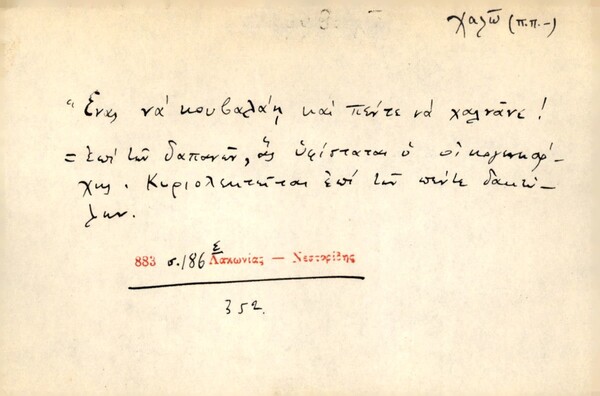 χαλῶ (π.π.–)
"Ἕνας νά κουβαλάῃ καί πέντε νά χαλνᾶνε!
= Ἐπί τῶν δαπανῶν, ἅς ὑφίσταται ὁ οἰκογενειάρ-
χης. Κυριολεκτεῖται ἐπί τῶν πέντε δακτύ-
λων.
883 σ. 186 ε Λακωνίας — Νεστορίδης
352.